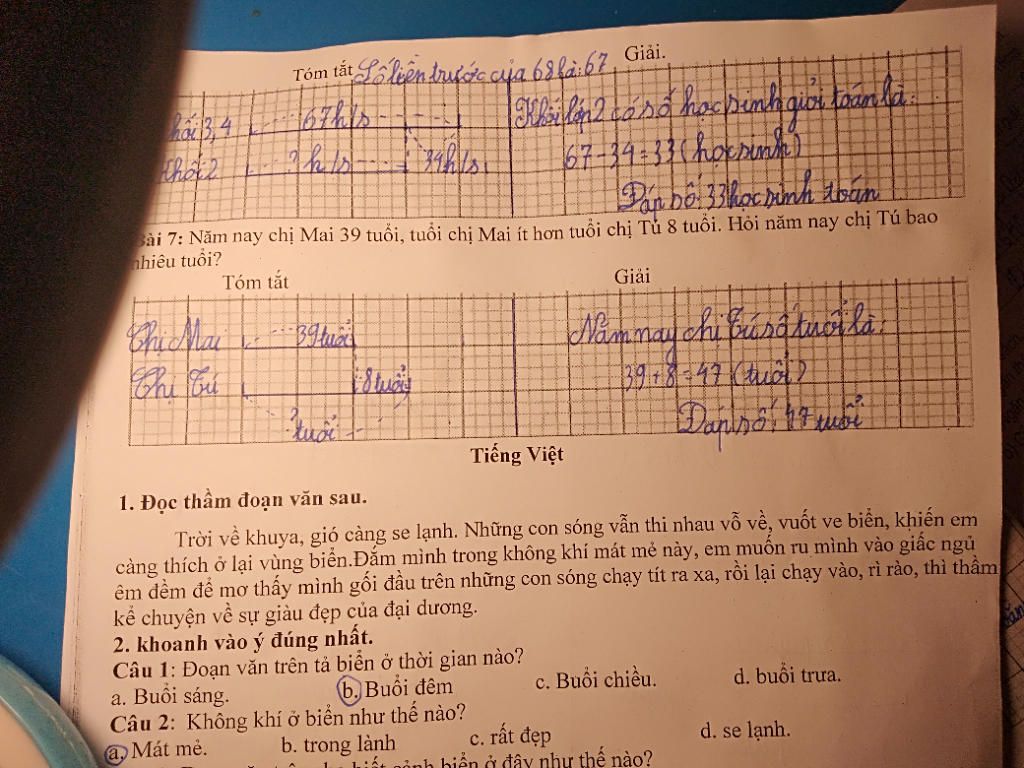 Tóm tắt Số liền trước của 68 là: 67 Giải.
hối 3, 4 67h/s Khối lớp 2 có số học sinh giỏi toán là:
Khối 2 ? h/s 34h/s 67-34=33 (học sinh)
Đáp số: 33 học sinh toán
Bài 7: Năm nay chị Mai 39 tuổi, tuổi chị Mai ít hơn tuổi chị Tú 8 tuổi. Hỏi năm nay chị Tú bao
nhiêu tuổi?
Tóm tắt Giải
Chị Mai 39 tuổi Năm nay chị Tú số tuổi là:
Chị Tú 8 tuổi 39+8=47 (tuổi)
? tuổi Đáp số: 47 tuổi
Tiếng Việt
1. Đọc thầm đoạn văn sau.
Trời về khuya, gió càng se lạnh. Những con sóng vẫn thi nhau vỗ về, vuốt ve biển, khiến em
càng thích ở lại vùng biển.Đắm mình trong không khí mát mẻ này, em muốn ru mình vào giấc ngủ
êm đềm để mơ thấy mình gối đầu trên những con sóng chạy tít ra xa, rồi lại chạy vào, rì rào, thì thầm
kể chuyện về sự giàu đẹp của đại dương.
2. khoanh vào ý đúng nhất.
Câu 1: Đoạn văn trên tả biển ở thời gian nào?
a. Buổi sáng. b. Buổi đêm c. Buổi chiều. d. buổi trưa.
Câu 2: Không khí ở biển như thế nào?
a. Mát mẻ. b. trong lành c. rất đẹp d. se lạnh.
biết cảnh biển ở đây như thế nào?